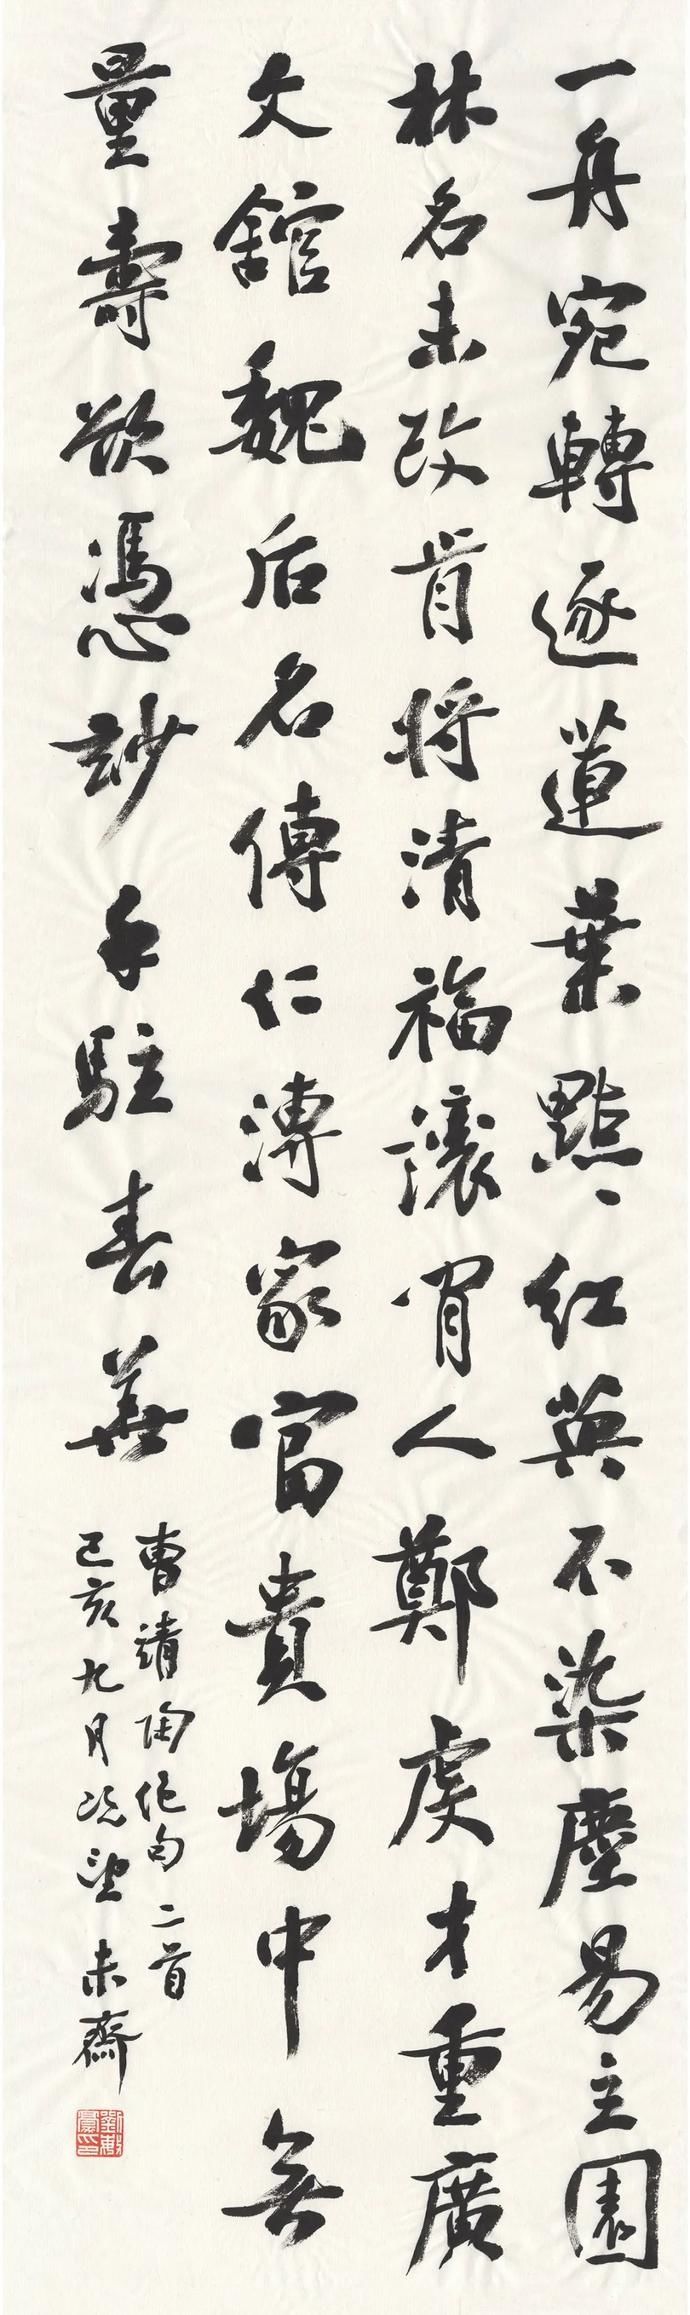 一舟宛轉逐蓮葉點〻紅英不染塵易主園
林名未改肯將清福讓閒人鄭虔才重廣
文館魏后名傳仁溥家富貴場中無
量壽欲憑妙手駐春華
曹靖陶絕句二首
己亥九月既望未齋